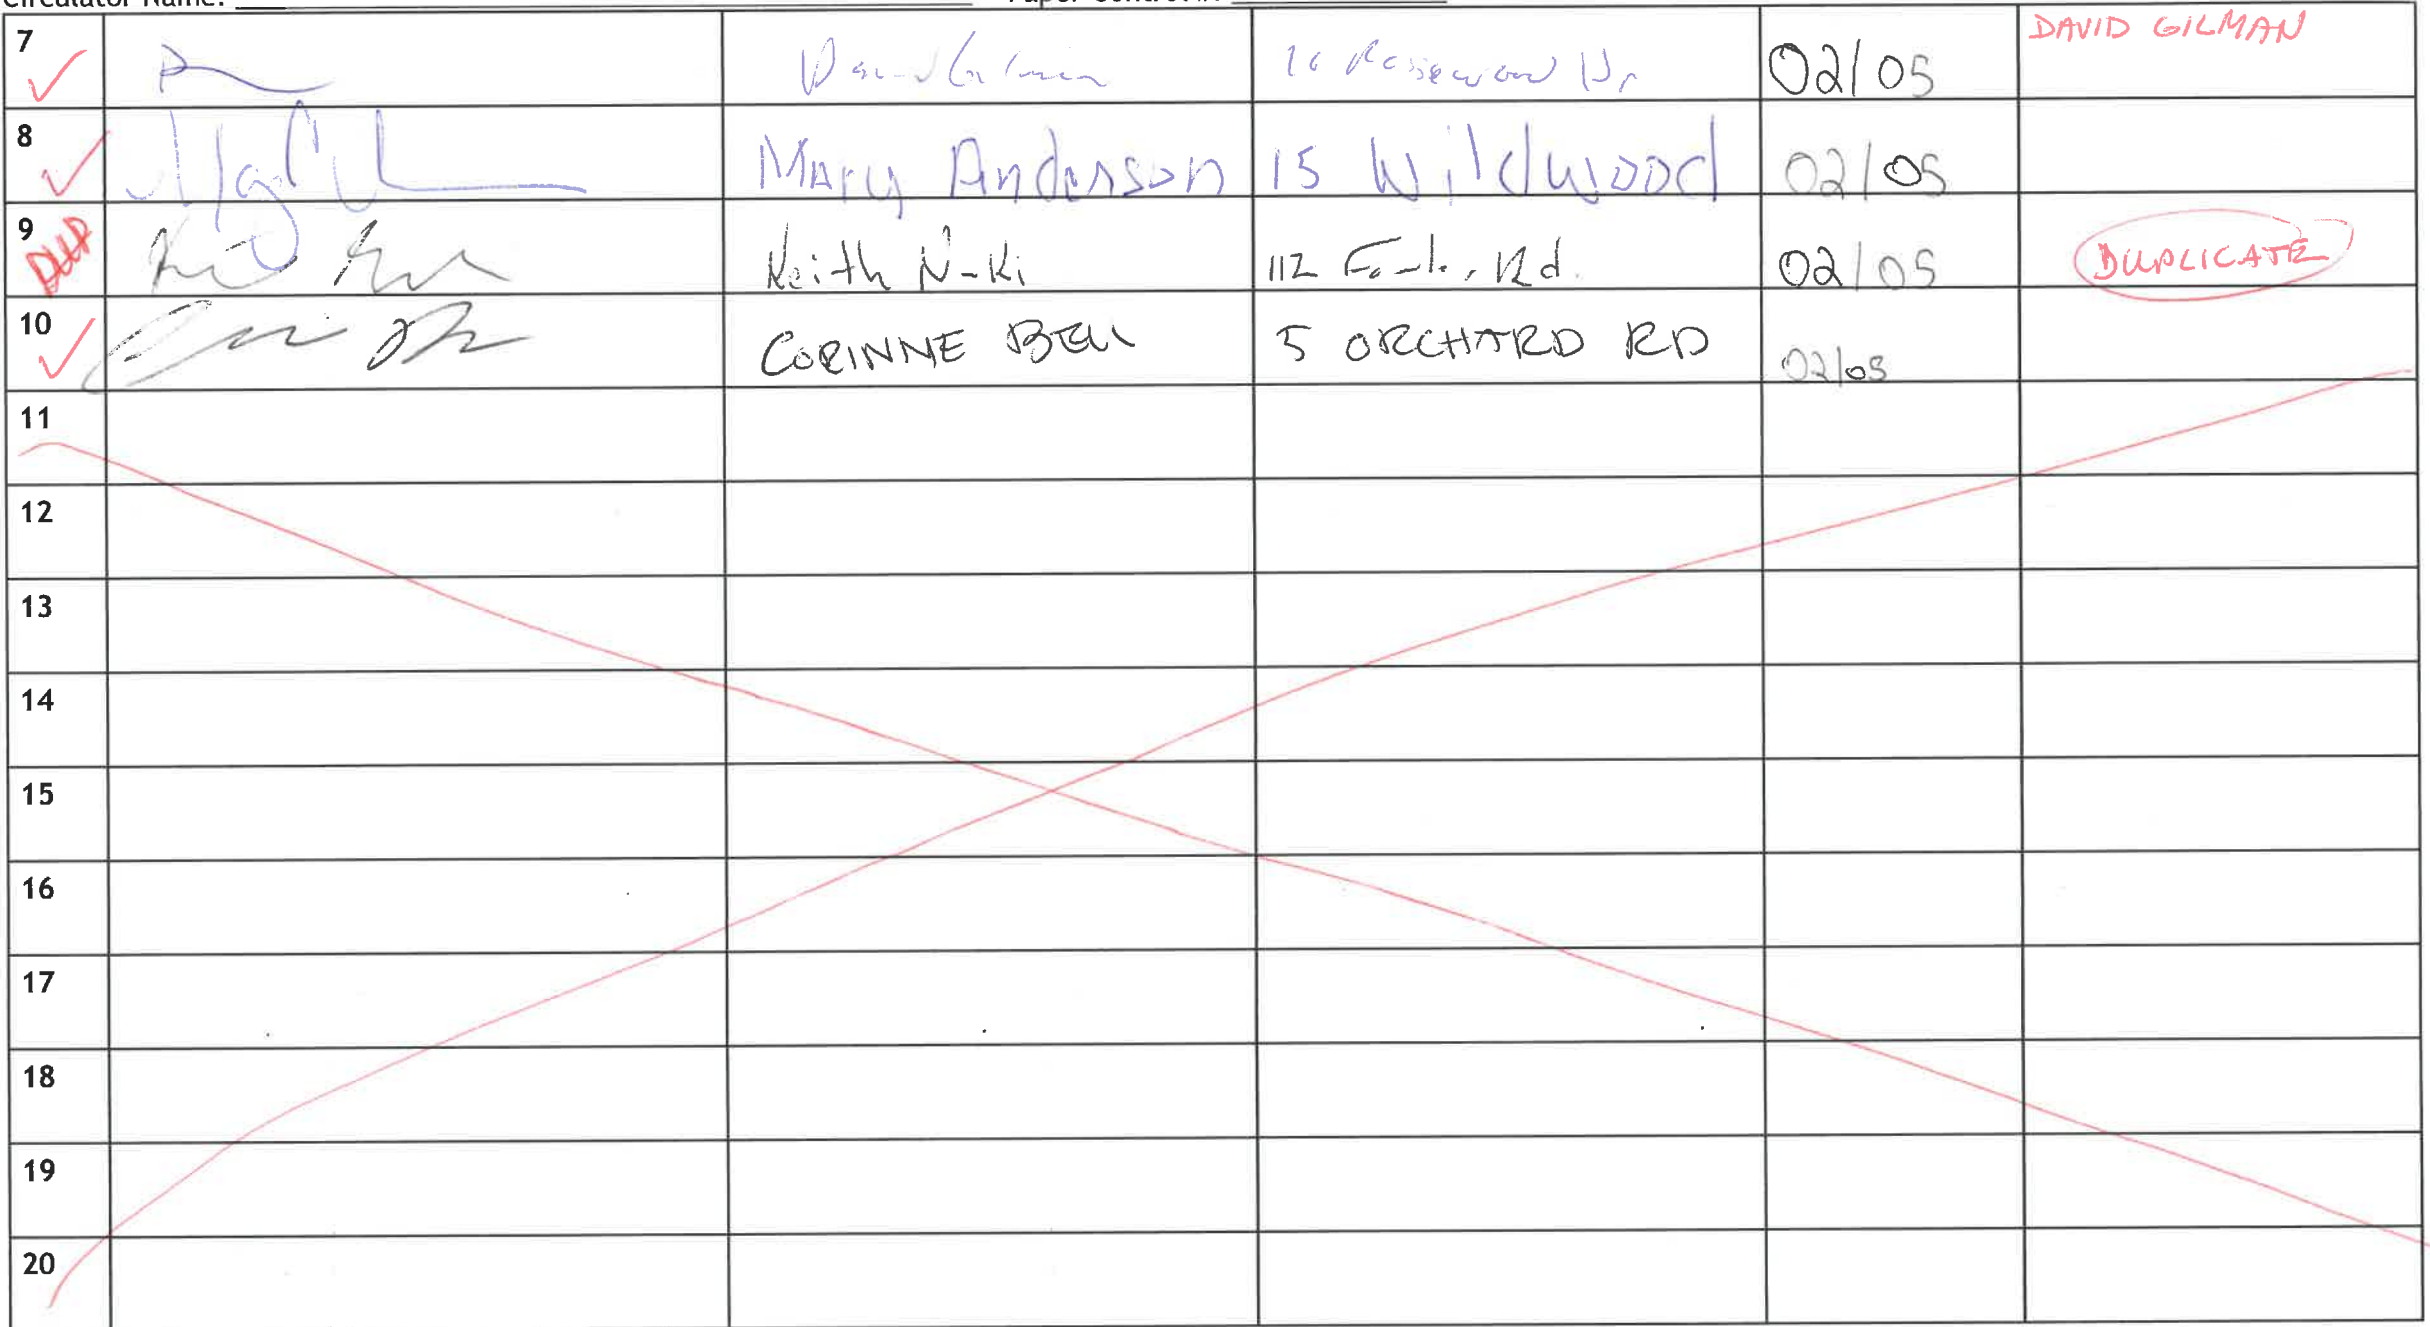 Circulator Name:
7 David Gilman 16 Rosewood Dr 02/05 DAVID GILMAN
8 Mary Anderson 15 Wildwood 02/05
9 DUP Keith 112 Rd. 02/05 DUPLICATE
10 CORINNE BELL 5 ORCHARD RD 02/05
11
12
13
14
15
16
17
18
19
20